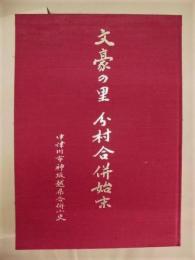 文豪の里 分村合併始末
中津川市神坂越県合併小史